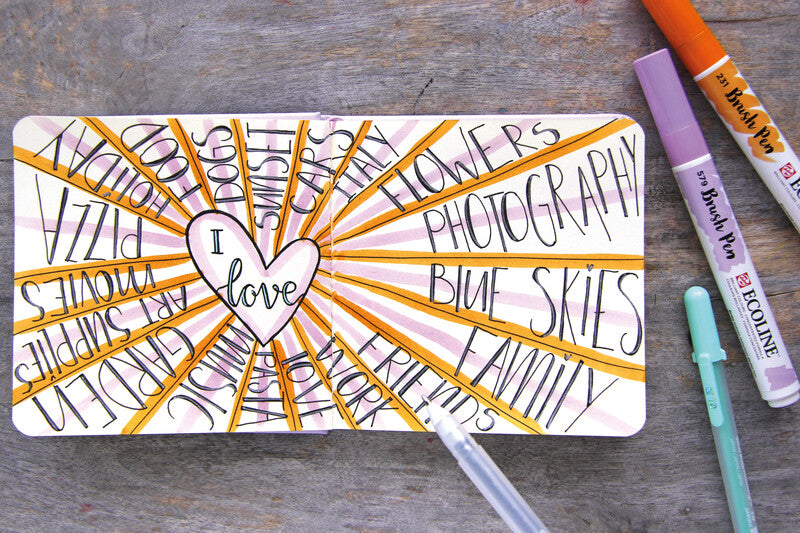 I
love
HOLIDAY
FOOD
DOGS
SUNSET
CARS
ITALY
FLOWERS
PHOTOGRAPHY
BLUE SKIES
FAMILY
FRIENDS
WORK
PASTA
MUSIC
GARDEN
ART SUPPLIES
MOVIES
PIZZA
231 Brush Pen
579 Brush Pen
ECOLINE